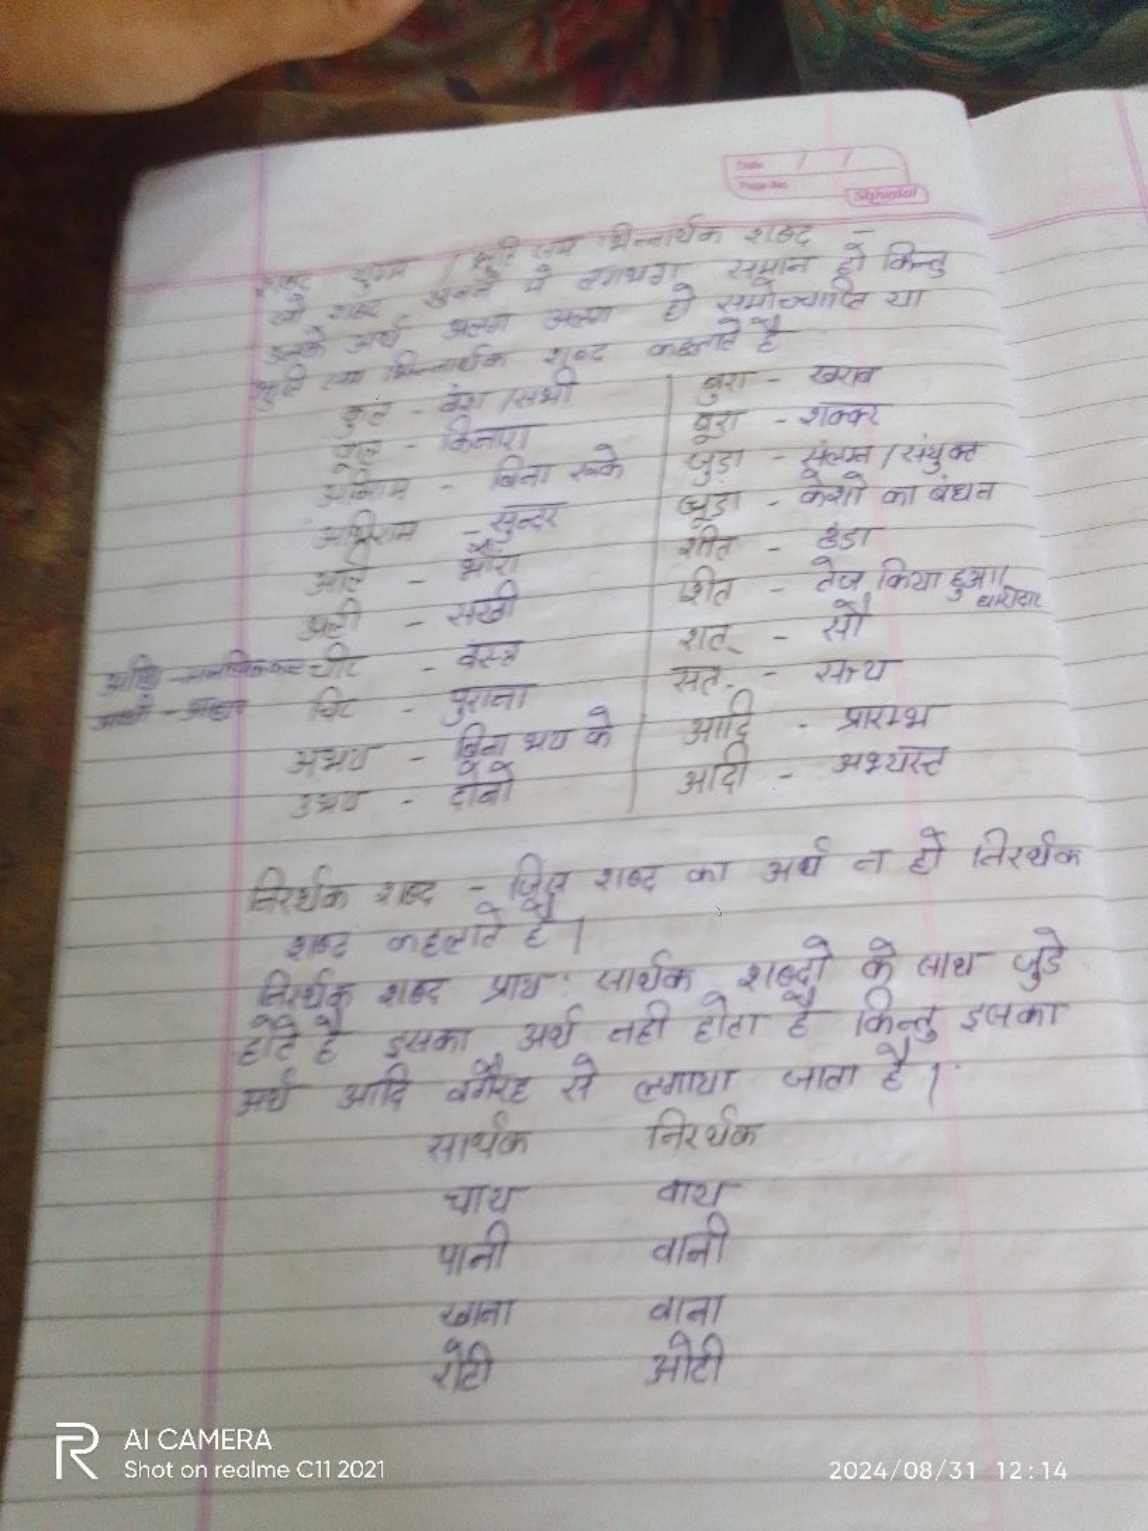 Date / /
Page No.
शब्द युग्म / श्रुति सम भिन्नार्थक शब्द -
जो शब्द सुनने में लगभग समान हो किन्तु
उनके अर्थ अलग अलग हो समोच्चारित या
श्रुति सम भिन्नार्थक शब्द कहलाते है
कुल - वंश / सभी
कूल - किनारा
अविराम - बिना रूके
अभिराम - सुन्दर
अलि - भौंरा
अली - सखी
चीर - वस्त्र
चिर - पुराना
अभय - बिना भय के
उभय - दोनो
बुरा - खराब
बूरा - शक्कर
जुड़ा - संलग्न / संयुक्त
जूड़ा - केशो का बंधन
शीत - ठंडा
शित - तेज किया हुआ / धारीदार
शत - सौ
सत - सत्य
आदि - प्रारम्भ
आदी - अभ्यस्त
निरर्थक शब्द - जिस शब्द का अर्थ न हो निरर्थक
शब्द कहलाते है ।
निरर्थक शब्द प्राय: सार्थक शब्दो के साथ जुडे
होते है इसका अर्थ नही होता है किन्तु इसका
अर्थ आदि वगैरह से लगाया जाता है ।
सार्थक निरर्थक
चाय वाय
पानी वानी
खाना वाना
रोटी ओटी
AI CAMERA
Shot on realme C11 2021
2024/08/31 12:14